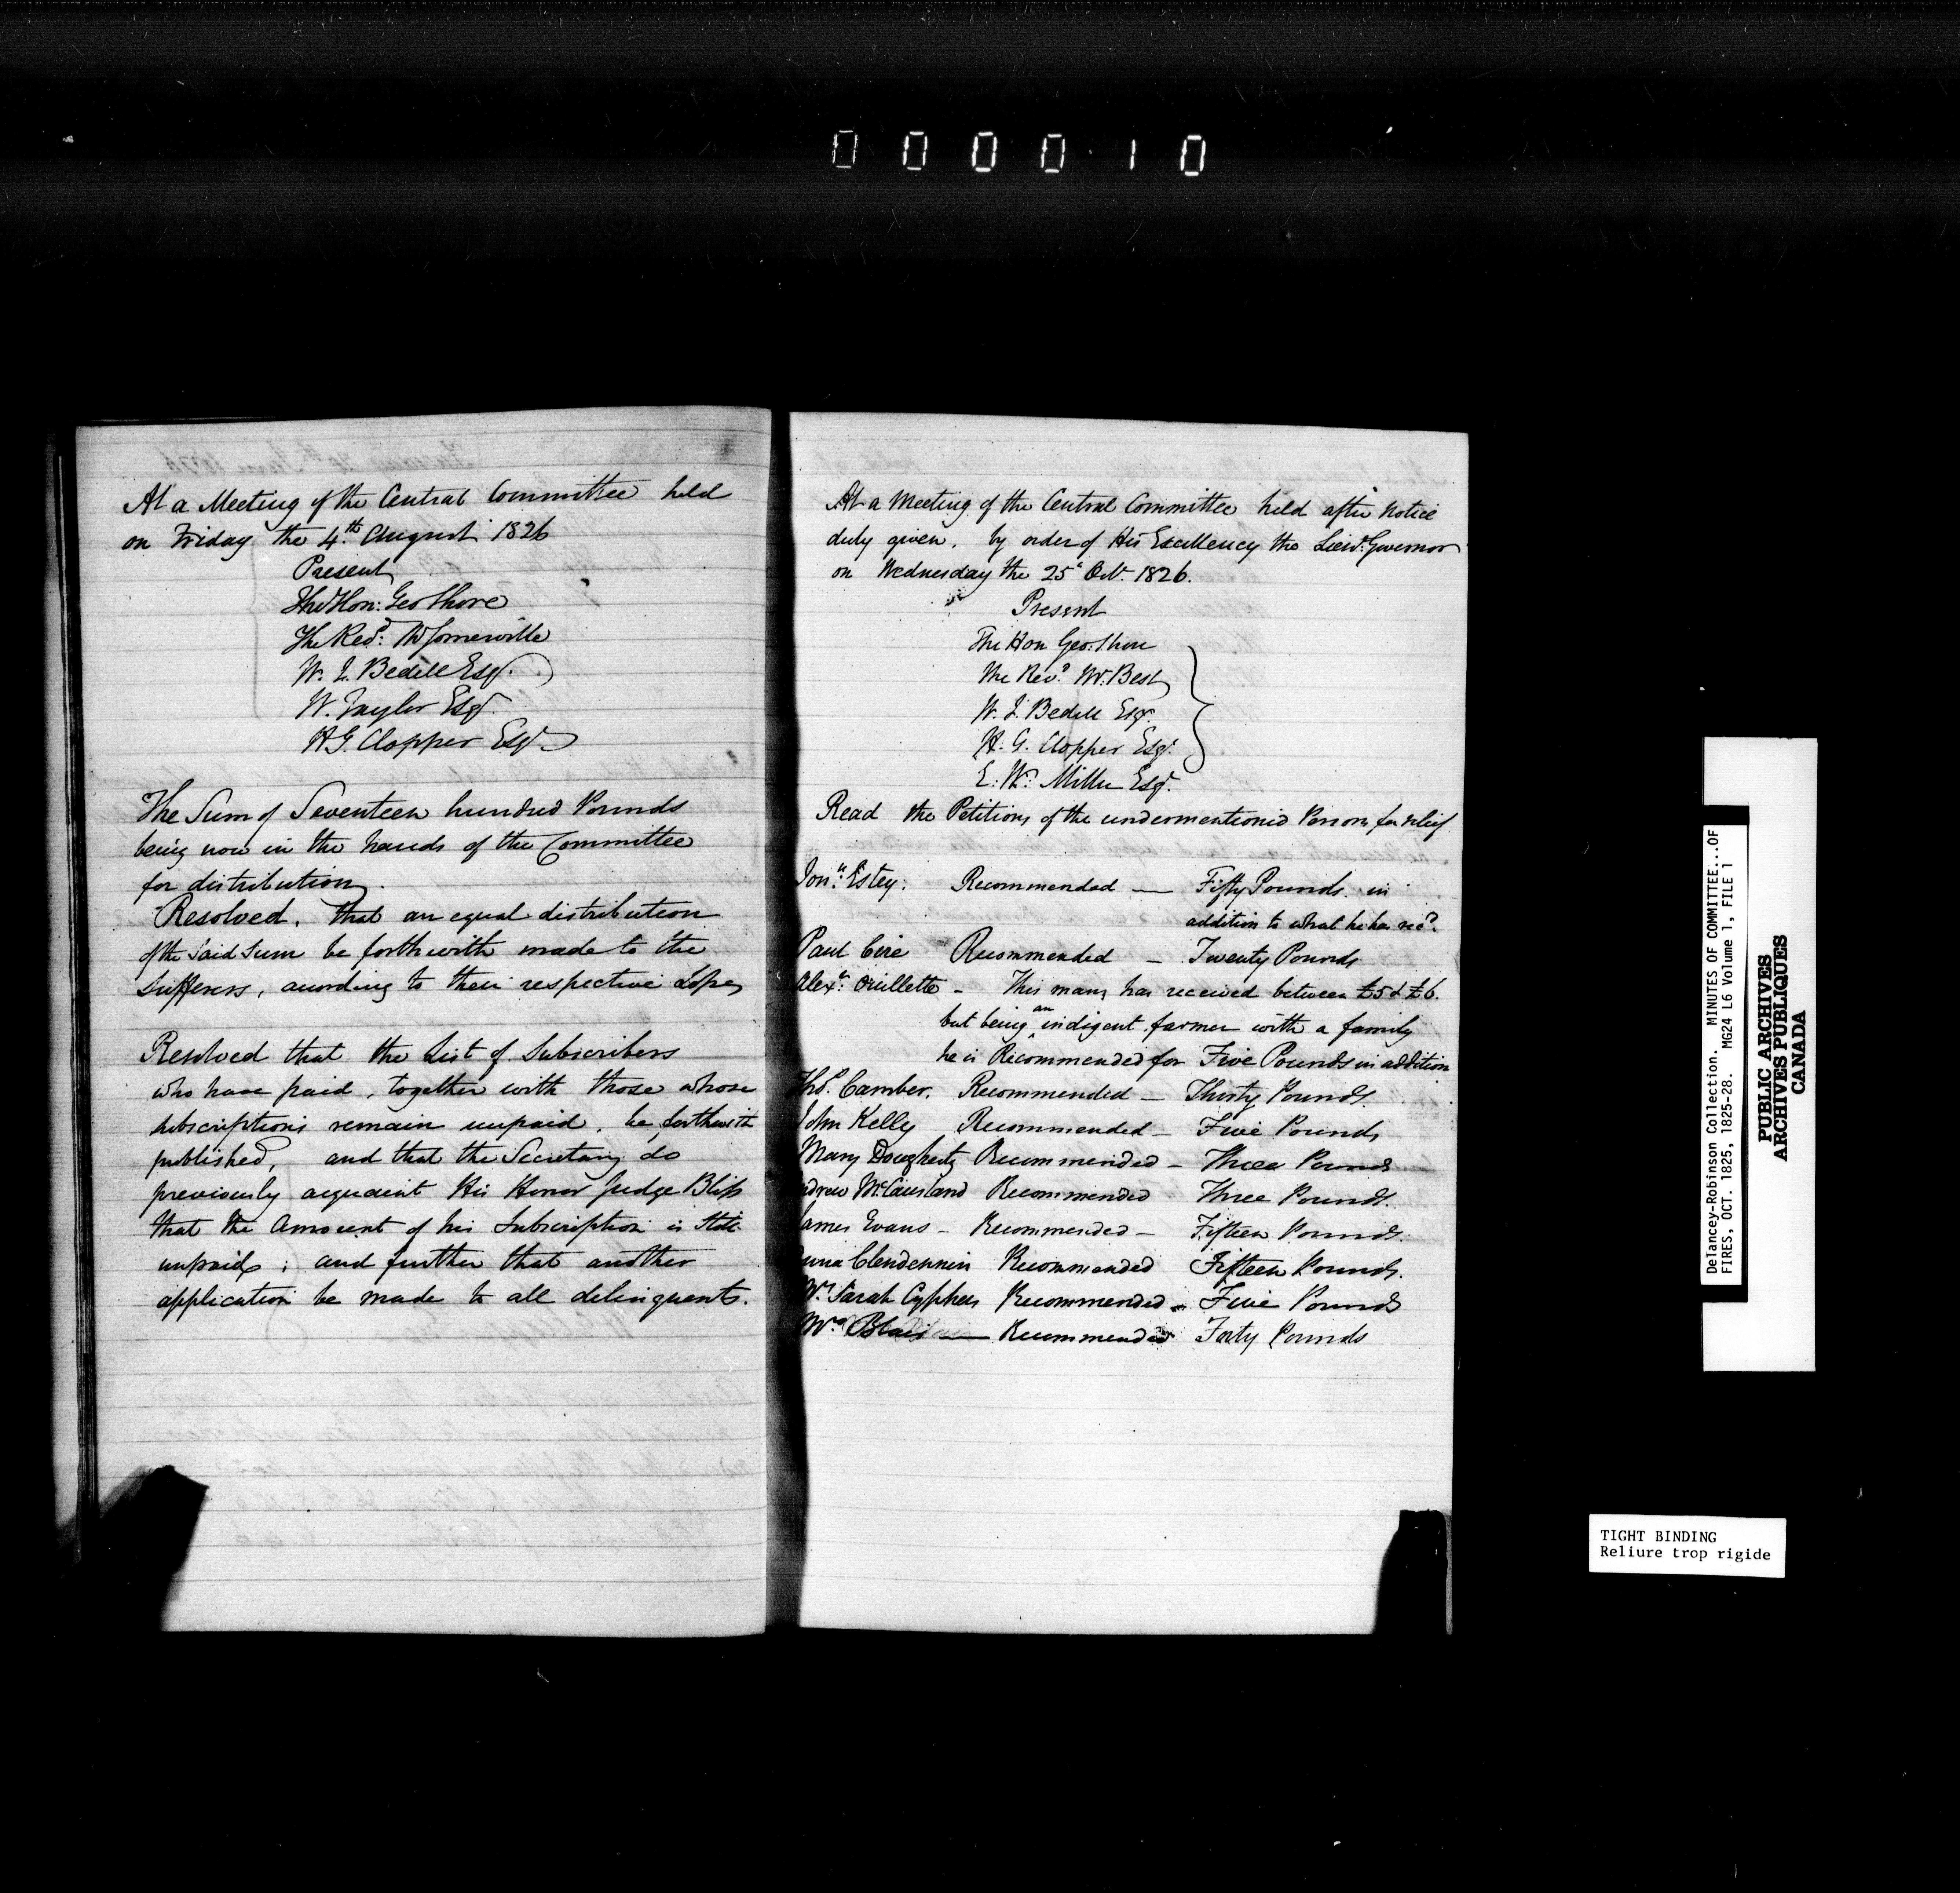 000010
At a Meeting of the Central Committee held
on Friday the 4th August 1826
Present
The Hon: Geo Shore
The Revd: Mr Somerville
W. J. Bedell Esqr.
W. Taylor Esqr.
H G. Clopper Esqr
The Sum of Seventeen hundred Pounds
being now in the hands of the Committee
for distribution.
Resolved, that an equal distribution
of the said sum be forthwith made to the
Sufferers, according to their respective Losses
Resolved that the List of Subscribers
who have paid, together with those whose
subscriptions remain unpaid, be forthwith
published, and that the Secretary do
previously acquaint His Honor Judge Bliss
that the Amount of his Subscription is still
unpaid; and further that another
application be made to all delinquents.
At a Meeting of the Central Committee held after Notice
duly given, by order of His Excellency the Lieut. Governor
on Wednesday the 25th Octr. 1826.
Present
The Hon Geo: Shore
The Revd. Mr. Best
W. J. Bedell Esqr.
H. G. Clopper Esqr.
E. W. Miller Esqr.
Read the Petitions of the undermentioned Persons for relief
Jonn. Estey. Recommended — Fifty Pounds. in
addition to what he has recd.
Paul Cire Recommended — Twenty Pounds
Alexr. Ouillette - This man has received between £5 & £6.
but being an indigent farmer with a family
he is Recommended for Five Pounds in addition
Thos. Camber. Recommended — Thirty Pounds.
John Kelly Recommended — Five Pounds
Mary Dougherty Recommended — Three Pounds
ndrew McCausland Recommended Three Pounds.
James Evans - Recommended — Fifteen Pounds.
Clendennin Recommended Fifteen Pounds.
Sarah Cyphers Recommended — Five Pounds
Blair — Recommended Forty Pounds
Delancey-Robinson Collection. MINUTES OF COMMITTEE...OF
FIRES, OCT. 1825, 1825-28. MG24 L6 Volume 1, FILE 1
PUBLIC ARCHIVES
ARCHIVES PUBLIQUES
CANADA
TIGHT BINDING
Reliure trop rigide